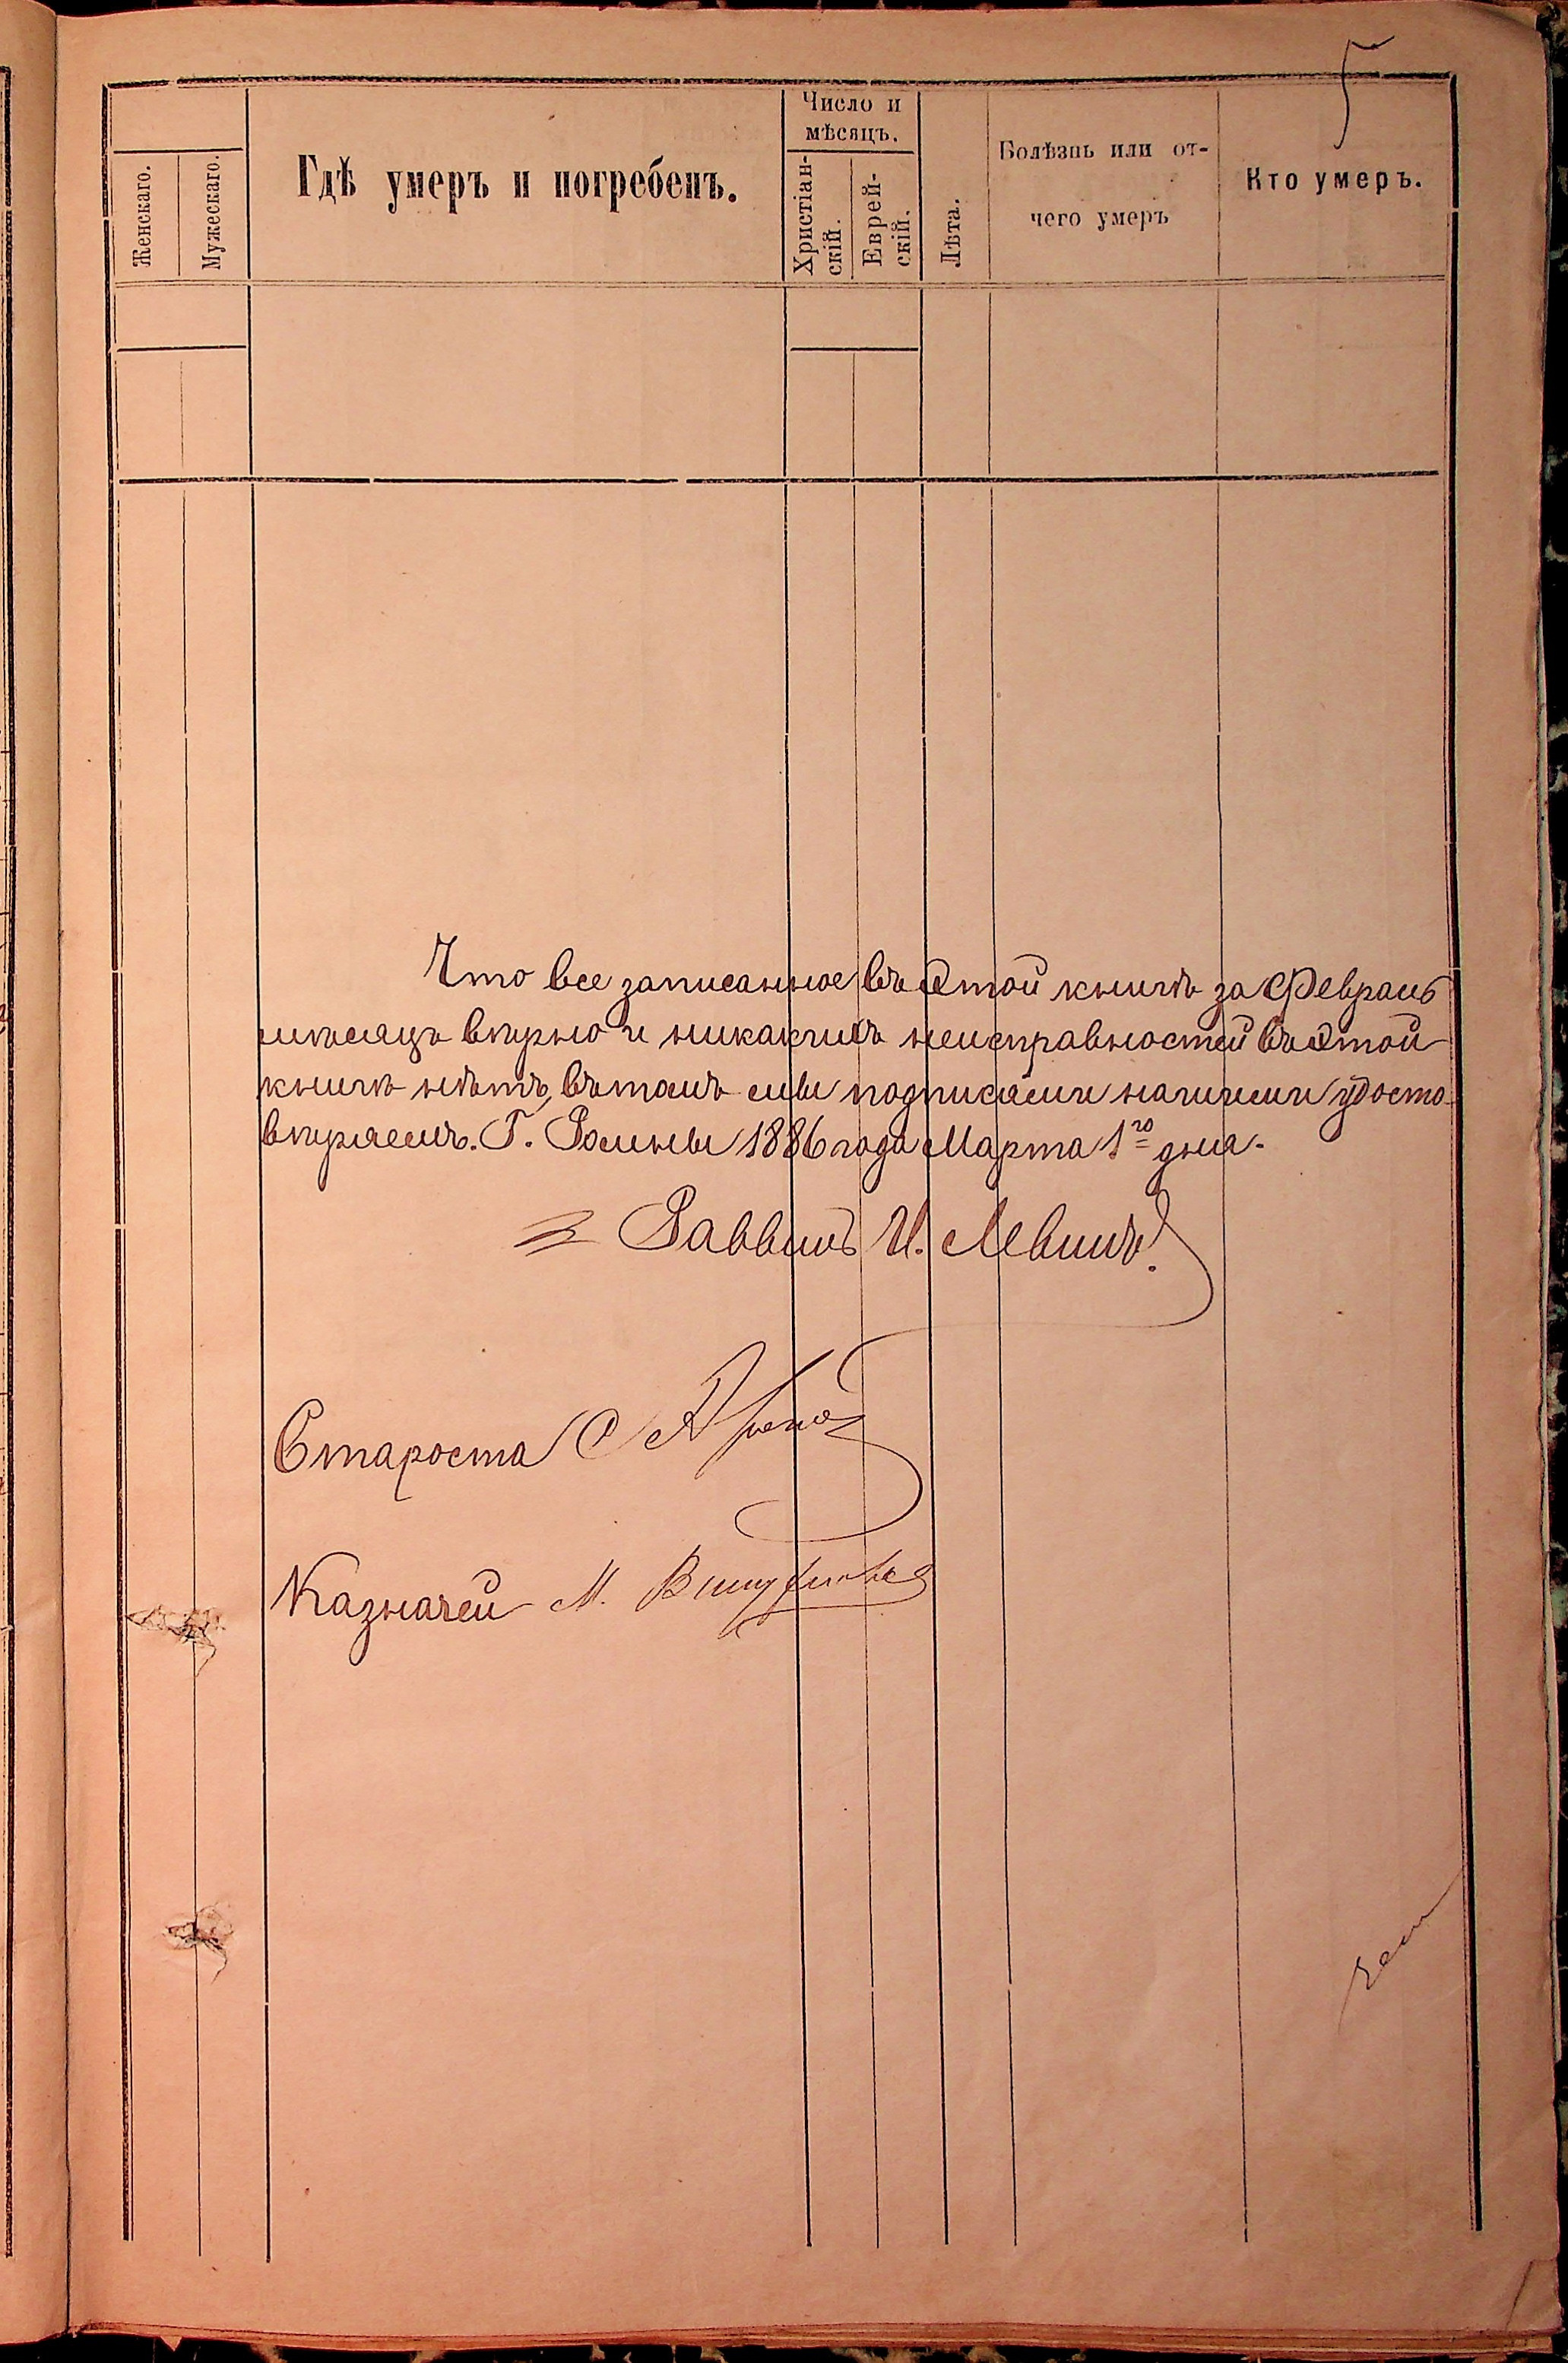 5
Женскаго.
Мужескаго.
Гдѣ умеръ и погребенъ.
Число и
мѣсяцъ.
Христіан-
скій.
Еврей-
скій.
Лѣта.
Болѣзнь или от-
чего умеръ
Кто умеръ.
Что все записанное въ этой книгѣ за Февраль
мѣсяцъ вѣрно и никакихъ неисправностей въ этой
книгѣ нѣтъ, въ томъ мы подписами нашими удосто-
вѣряемъ. Г. Росіены 1886 года Марта 1го дня.
Раввинъ И. Левинъ
Староста
Казначей М.